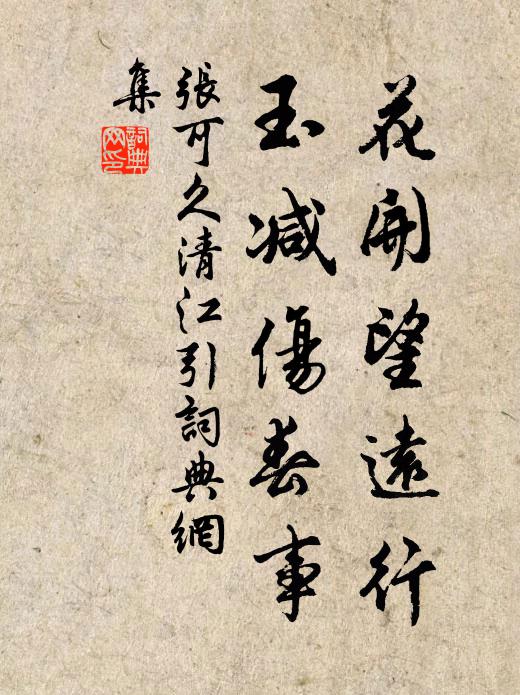 花開望遠行
玉減傷春事
張可久清江引詞典網
集
詞典網印